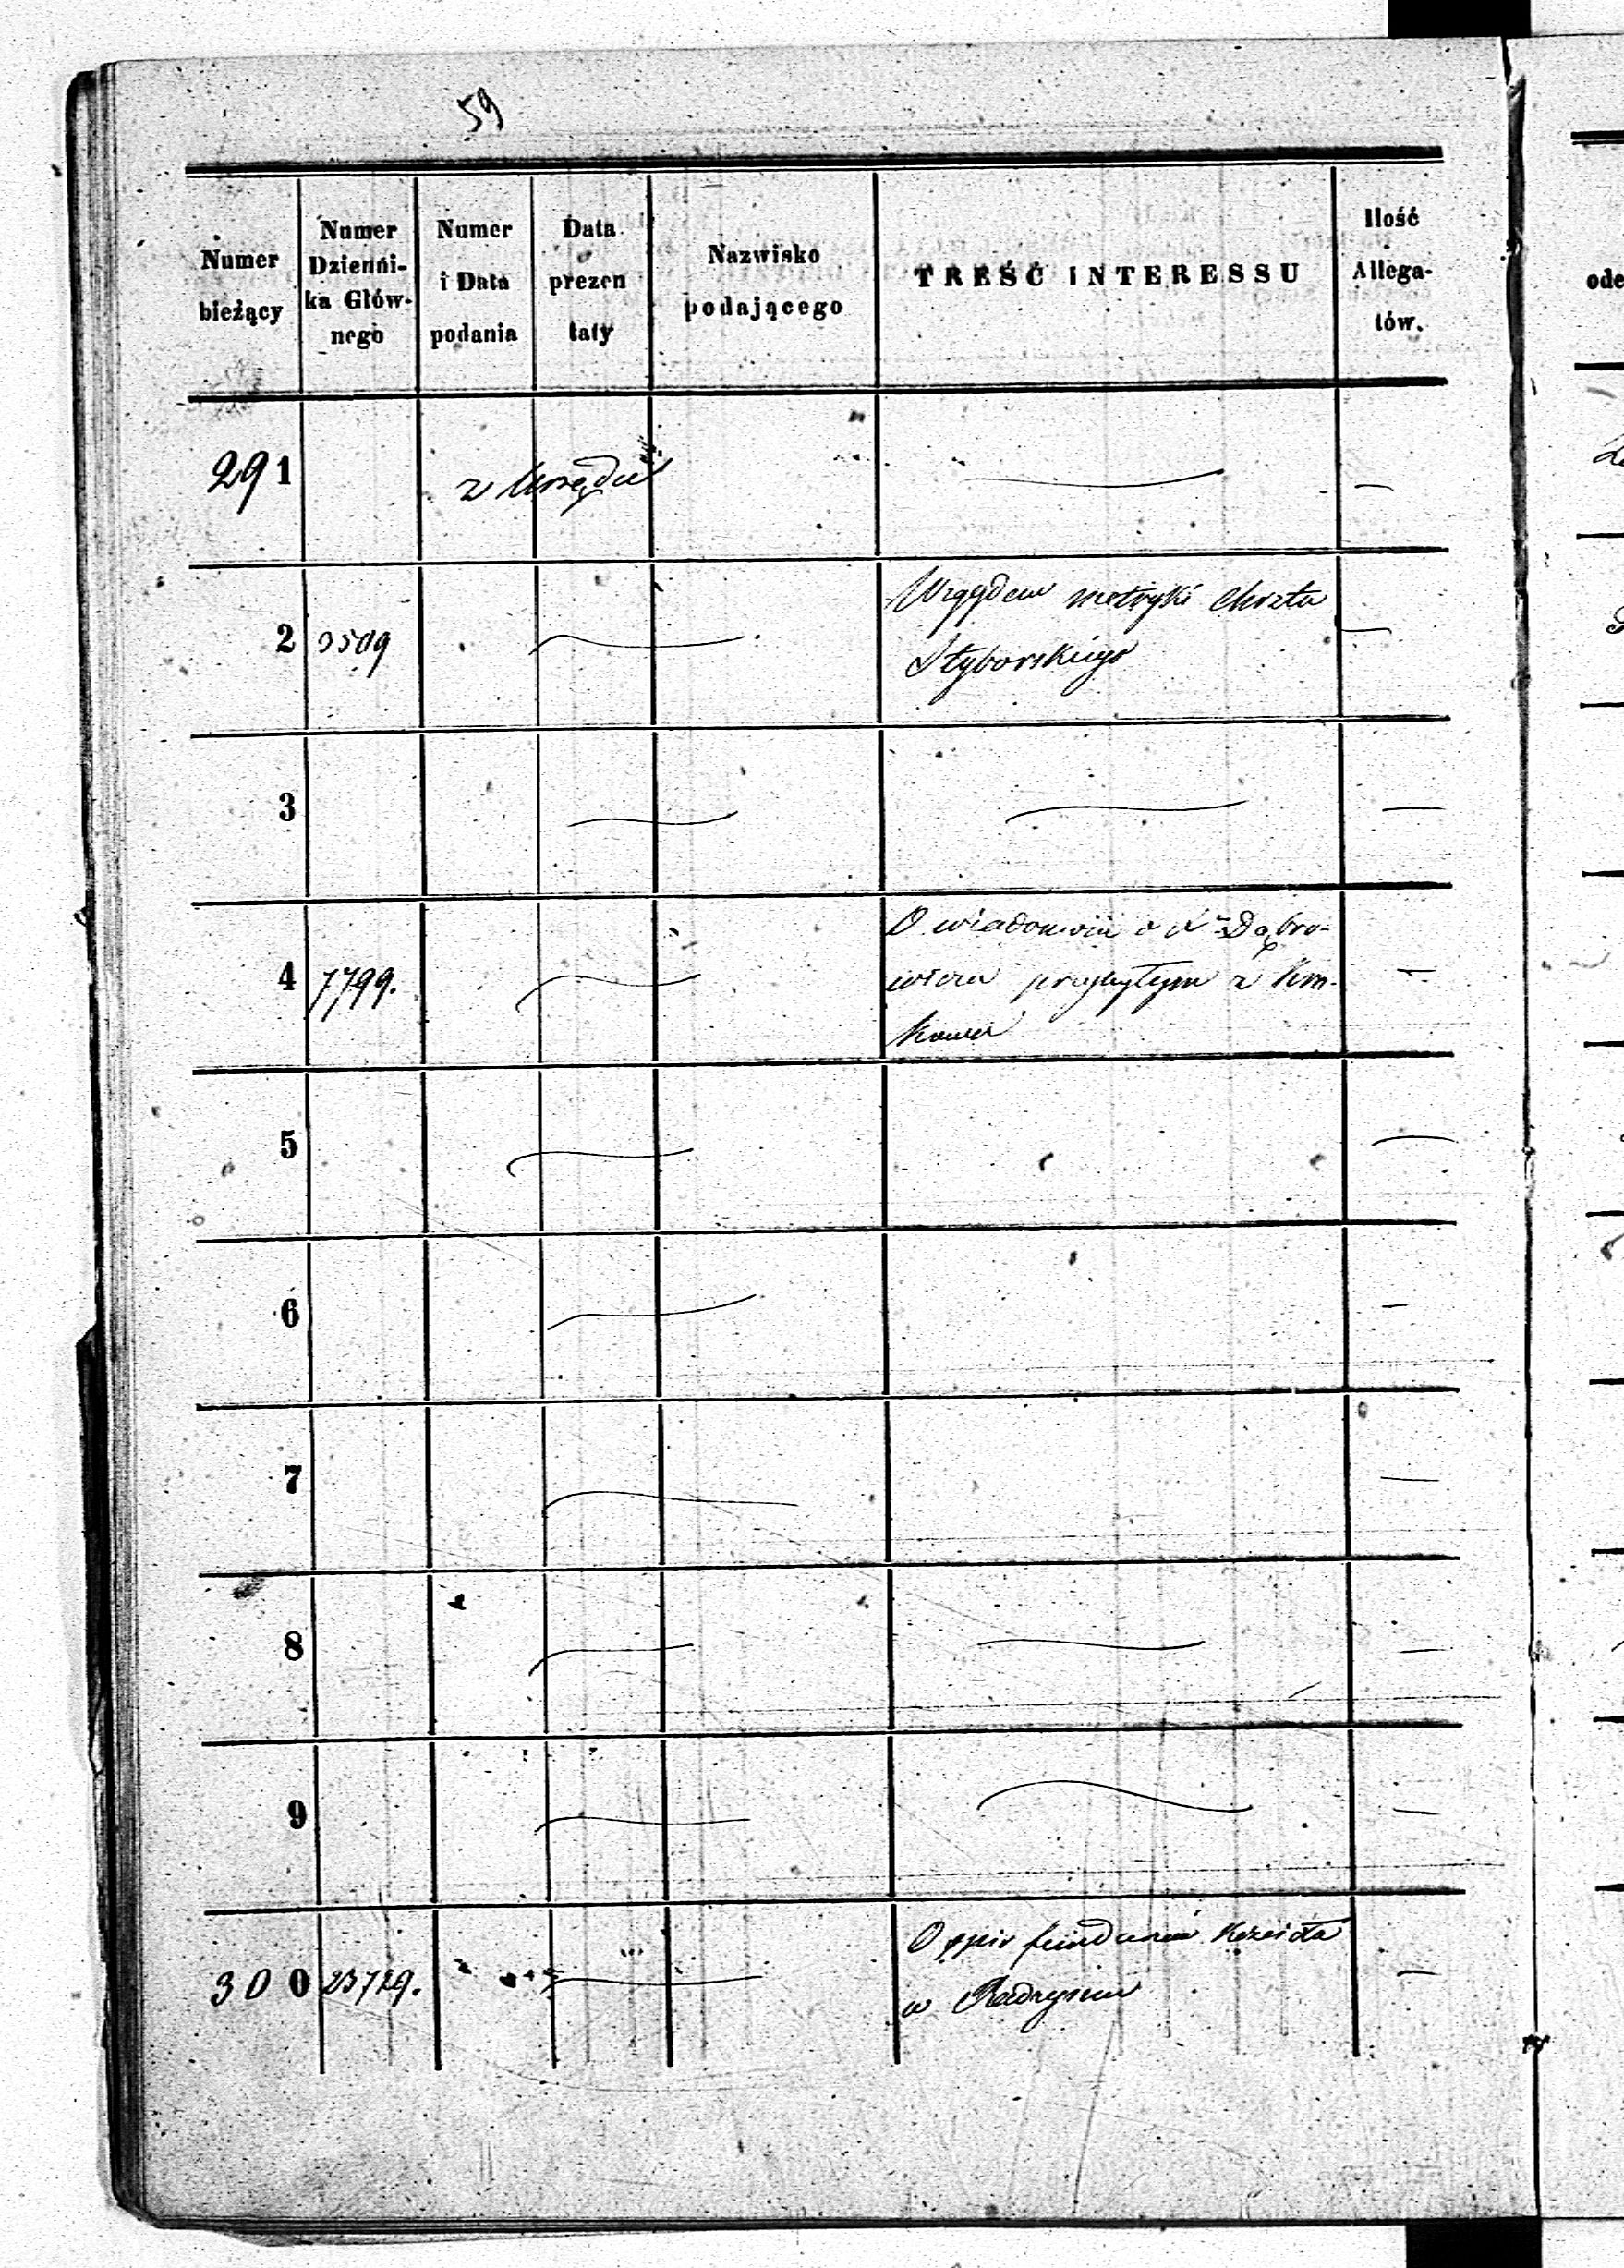 59
Numer bieżący
Numer Dzienni-ka Głów-nego
Numer i Data podania
Data prezen taty
Nazwisko podającego
TREŚĆ INTERESSU
Ilość Allega-tów.
291 z Urzędu
2 3509 Względem metryki chrztu
Styborskiego
3
4 7799. O wiadomość o Dąbro-
wiczu przybyłym z Kra-
kowa
5
6
7
8
9
300 23729. O spis funduszu Kościoła
w Radzyminie